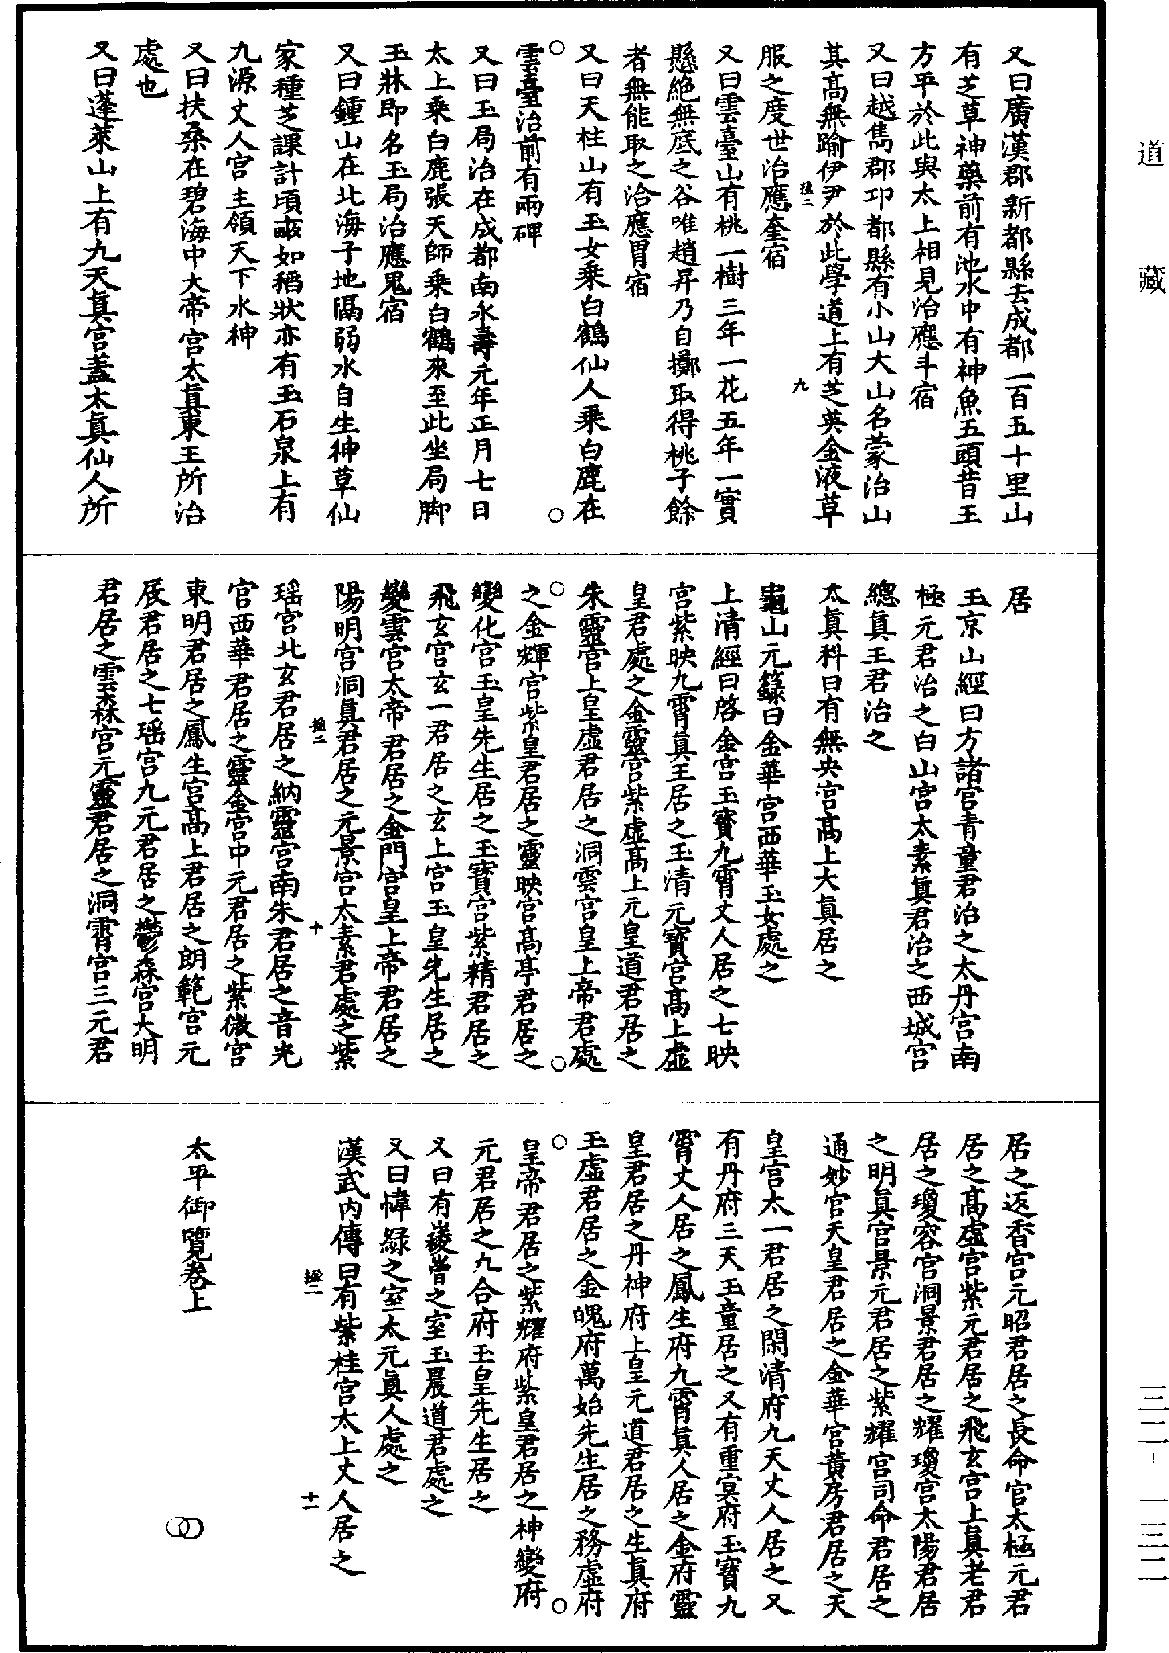 道藏
又曰廣漢郡新都縣去成都一百五十里山
有芝草神藥前有池水中有神魚五頭昔王
方平於此與太上相見治應斗宿
又曰越雋郡邛都縣有小山大山名蒙治山
其高無踰伊尹於此學道上有芝英金液草
服之度世治應奎宿
極二
九
又曰雲臺山有桃一樹三年一花五年一實
懸絕無底之谷唯趙昇乃自擲取得桃子餘
者無能取之治應胃宿
又曰天柱山有玉女乘白鶴仙人乘白鹿在
雲臺治前有兩碑
又曰玉局治在成都南永壽元年正月七日
太上乘白鹿張天師乘白鶴來至此坐局腳
玉牀即名玉局治應鬼宿
又曰鍾山在北海子地隔弱水自生神草仙
家種芝課計頃畝如稻狀亦有玉石泉上有
九源丈人宮主領天下水神
又曰扶桑在碧海中大帝宮太真東王所治
處也
又曰蓬萊山上有九天真宮蓋太真仙人所
居
玉京山經曰方諸宮青童君治之太丹宮南
極元君治之白山宮太素真君治之西城宮
總真王君治之
太真科曰有無央宮高上大真居之
龜山元籙曰金華宮西華玉女處之
上清經曰啓金宮玉寶九霄丈人居之七映
宮紫映九霄真王居之玉清元寶宮高上虛
皇君處之金靈宮紫虛高上元皇道君居之
朱靈宮上皇虛君居之洞雲宮皇上帝君處
之金輝宮紫皇君居之靈映宮高亭君居之
變化宮玉皇先生居之玉寶宮紫精君居之
飛玄宮玄一君居之玄上宮玉皇先生居之
變雲宮太帝君居之金門宮皇上帝君居之
陽明宮洞真君居之元景宮太素君處之紫
極二
十
瑤宮北玄君居之納靈宮南朱君居之音光
宮西華君居之靈金宮中元君居之紫微宮
東明君居之鳳生宮高上君居之朗範宮元
辰君居之七瑤宮九元君居之鬱森宮大明
君居之雲森宮元靈君居之洞霄宮三元君
居之返香宮元昭君居之長命宮太極元君
居之高虛宮紫元君居之飛玄宮上真老君
居之瓊容宮洞景君居之耀瓊宮太陽君居
之明真宮景元君居之紫耀宮司命君居之
通妙宮天皇君居之金華宮黃房君居之天
皇宮太一君居之閑清府九天丈人居之又
有丹府三天玉童居之又有重冥府玉寶九
霄丈人居之鳳生府九霄真人居之金府靈
皇君居之丹神府上皇元道君居之生真府
玉虛君居之金魄府萬始先生居之務虛府
皇帝君居之紫耀府紫皇君居之神變府
元君居之九合府玉皇先生居之
又曰有薐㬱之室玉晨道君處之
又曰幃綠之室太元真人處之
漢武內傳曰有紫桂宮太上丈人居之
極二
十一
太平御覽卷上
三二-一三二